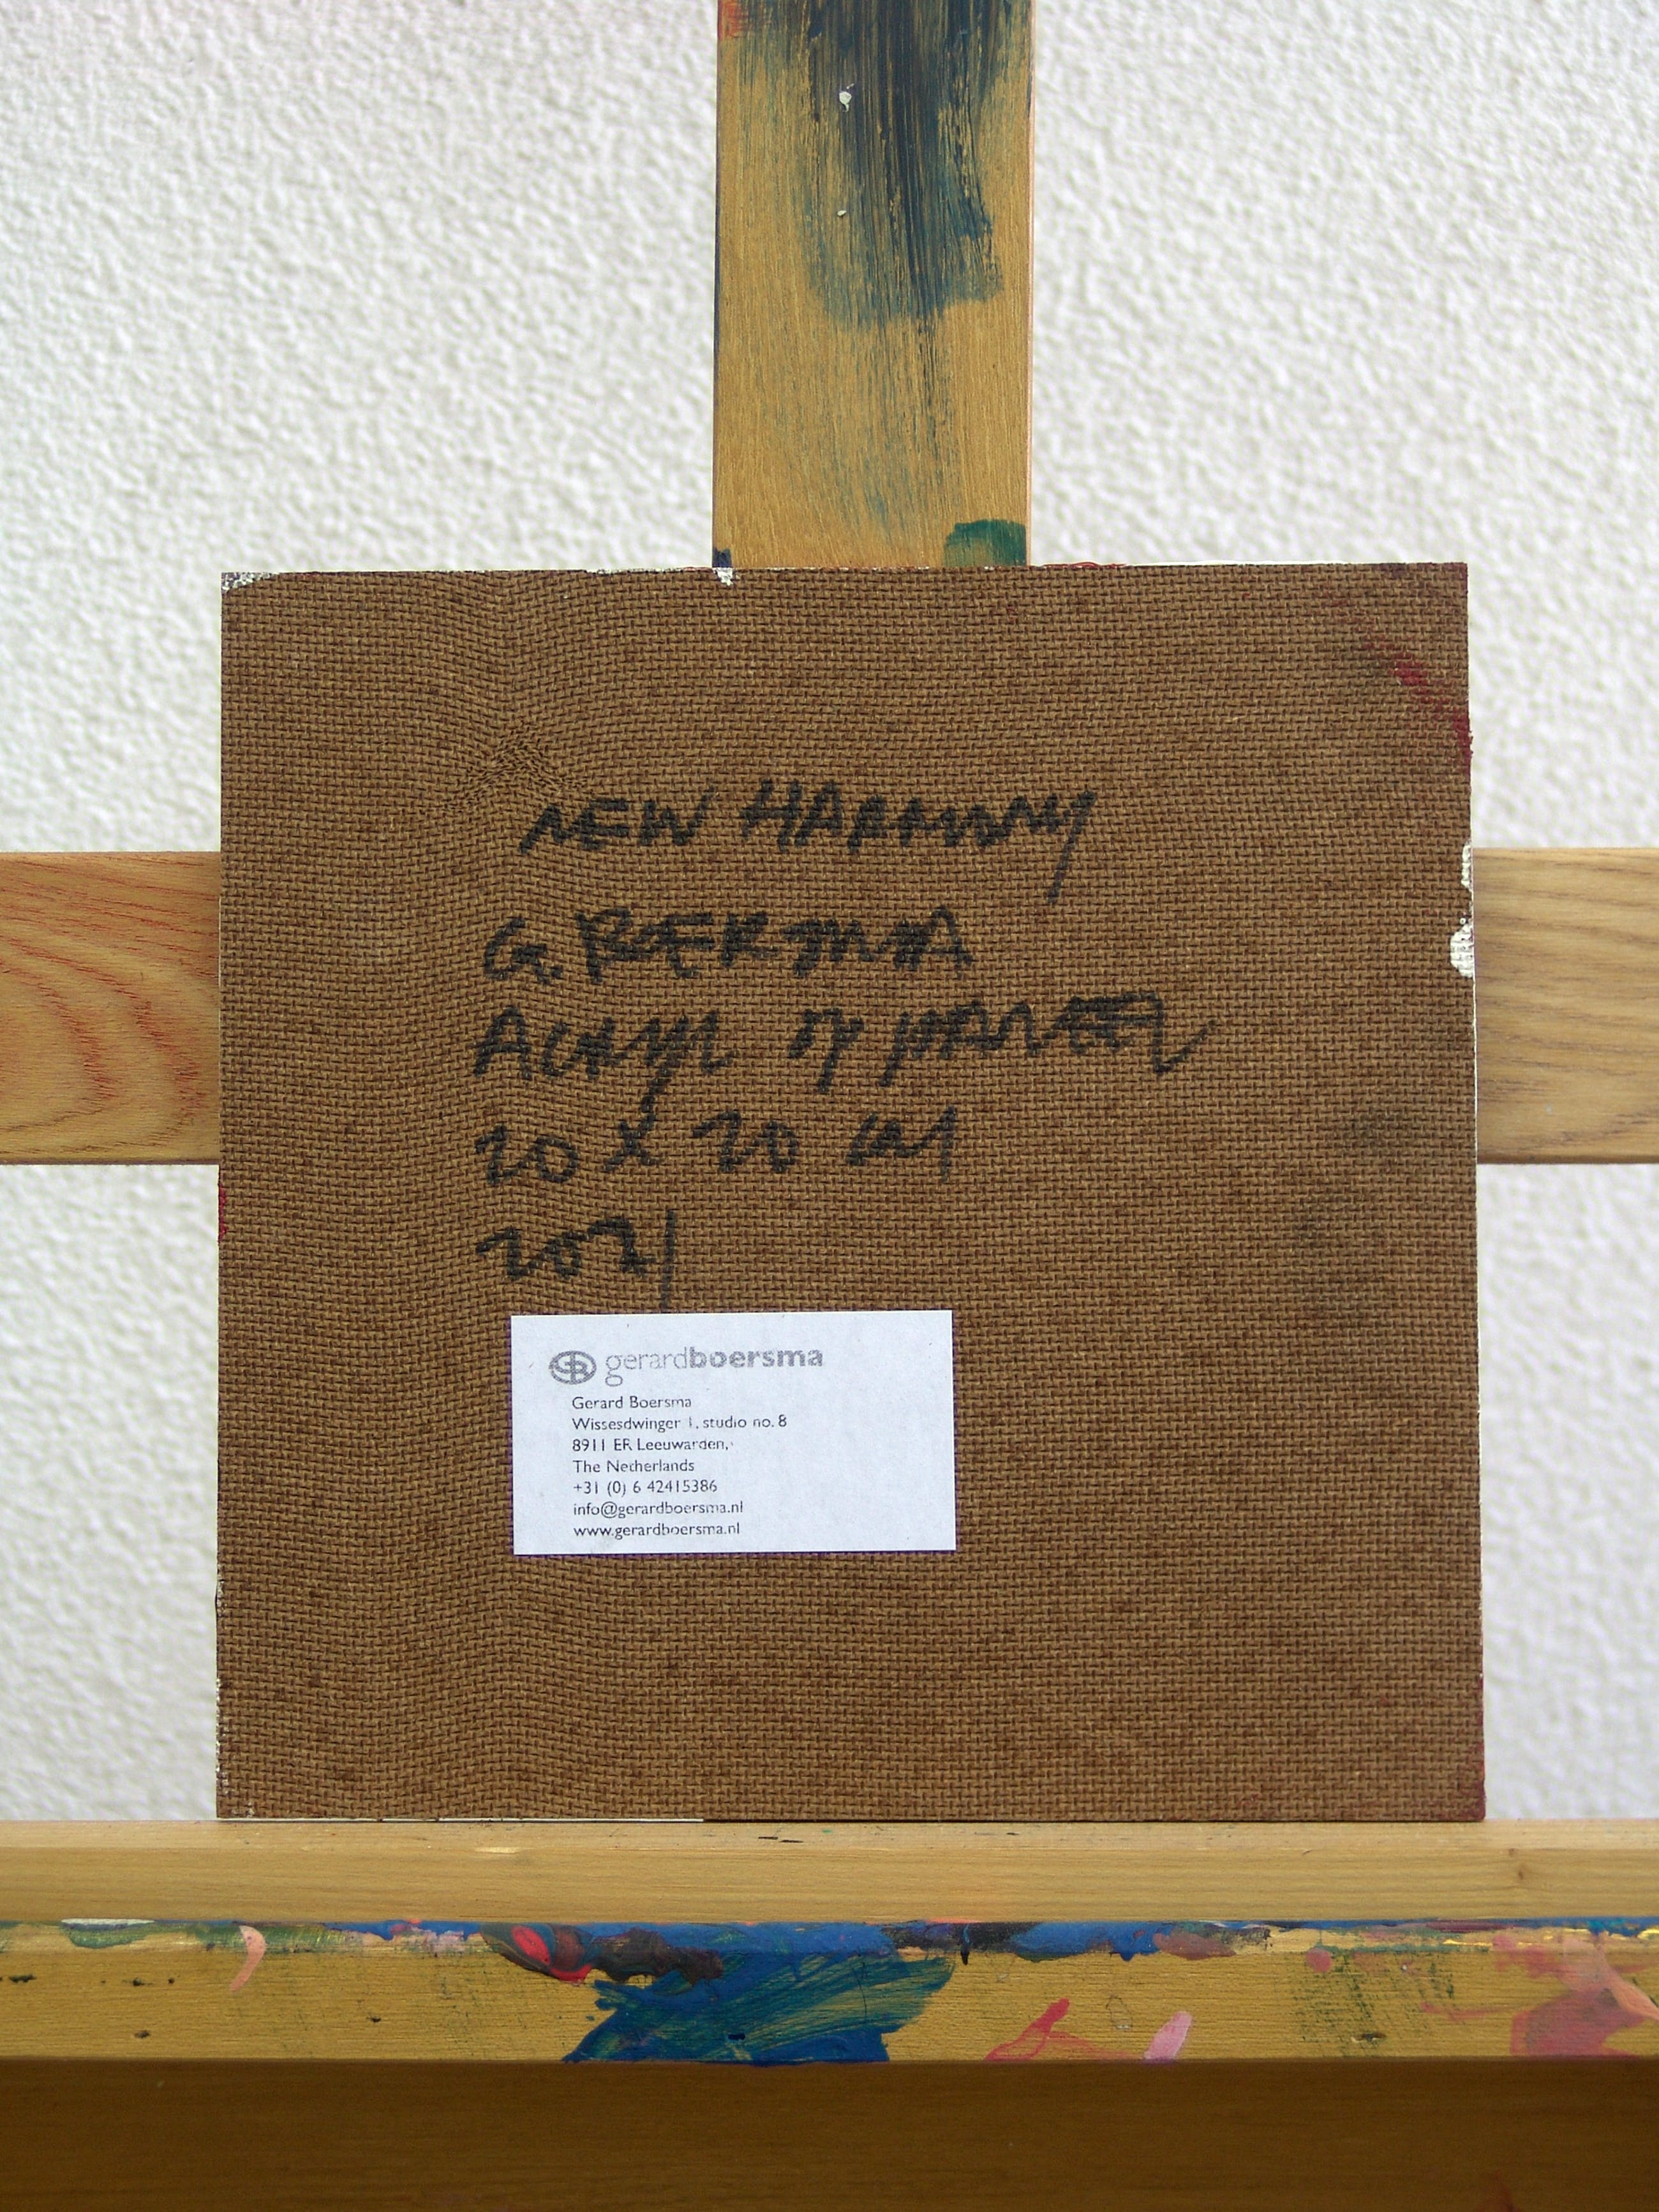 NEW HARMONY
G. BOERSMA
ACRYL OP PANEEL
20 X 20 CM
2021
gerardboersma
Gerard Boersma
Wissesdwinger 1, studio no. 8
8911 ER Leeuwarden,
The Netherlands
+31 (0) 6 42415386
info@gerardboersma.nl
www.gerardboersma.nl